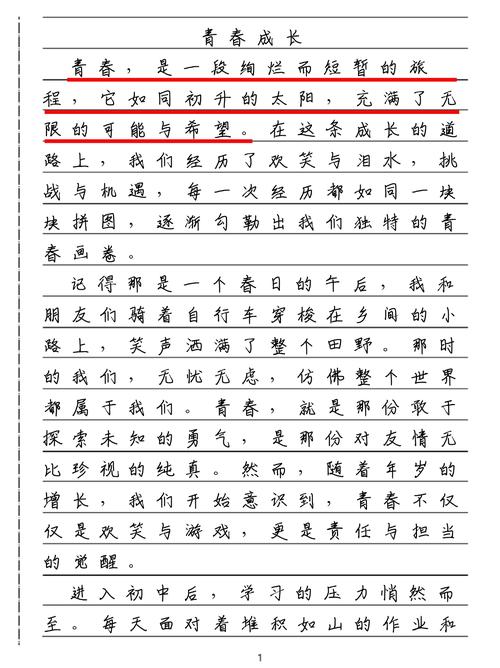 青春成长
青春，是一段绚烂而短暂的旅
程，它如同初升的太阳，充满了无
限的可能与希望。在这条成长的道
路上，我们经历了欢笑与泪水，挑
战与机遇，每一次经历都如同一块
块拼图，逐渐勾勒出我们独特的青
春画卷。
记得那是一个春日的午后，我和
朋友们骑着自行车穿梭在乡间的小
路上，笑声洒满了整个田野。那时
的我们，无忧无虑，仿佛整个世界
都属于我们。青春，就是那份敢于
探索未知的勇气，是那份对友情无
比珍视的纯真。然而，随着年岁的
增长，我们开始意识到，青春不仅
仅是欢笑与游戏，更是责任与担当
的觉醒。
进入初中后，学习的压力悄然而
至。每天面对着堆积如山的作业和
1